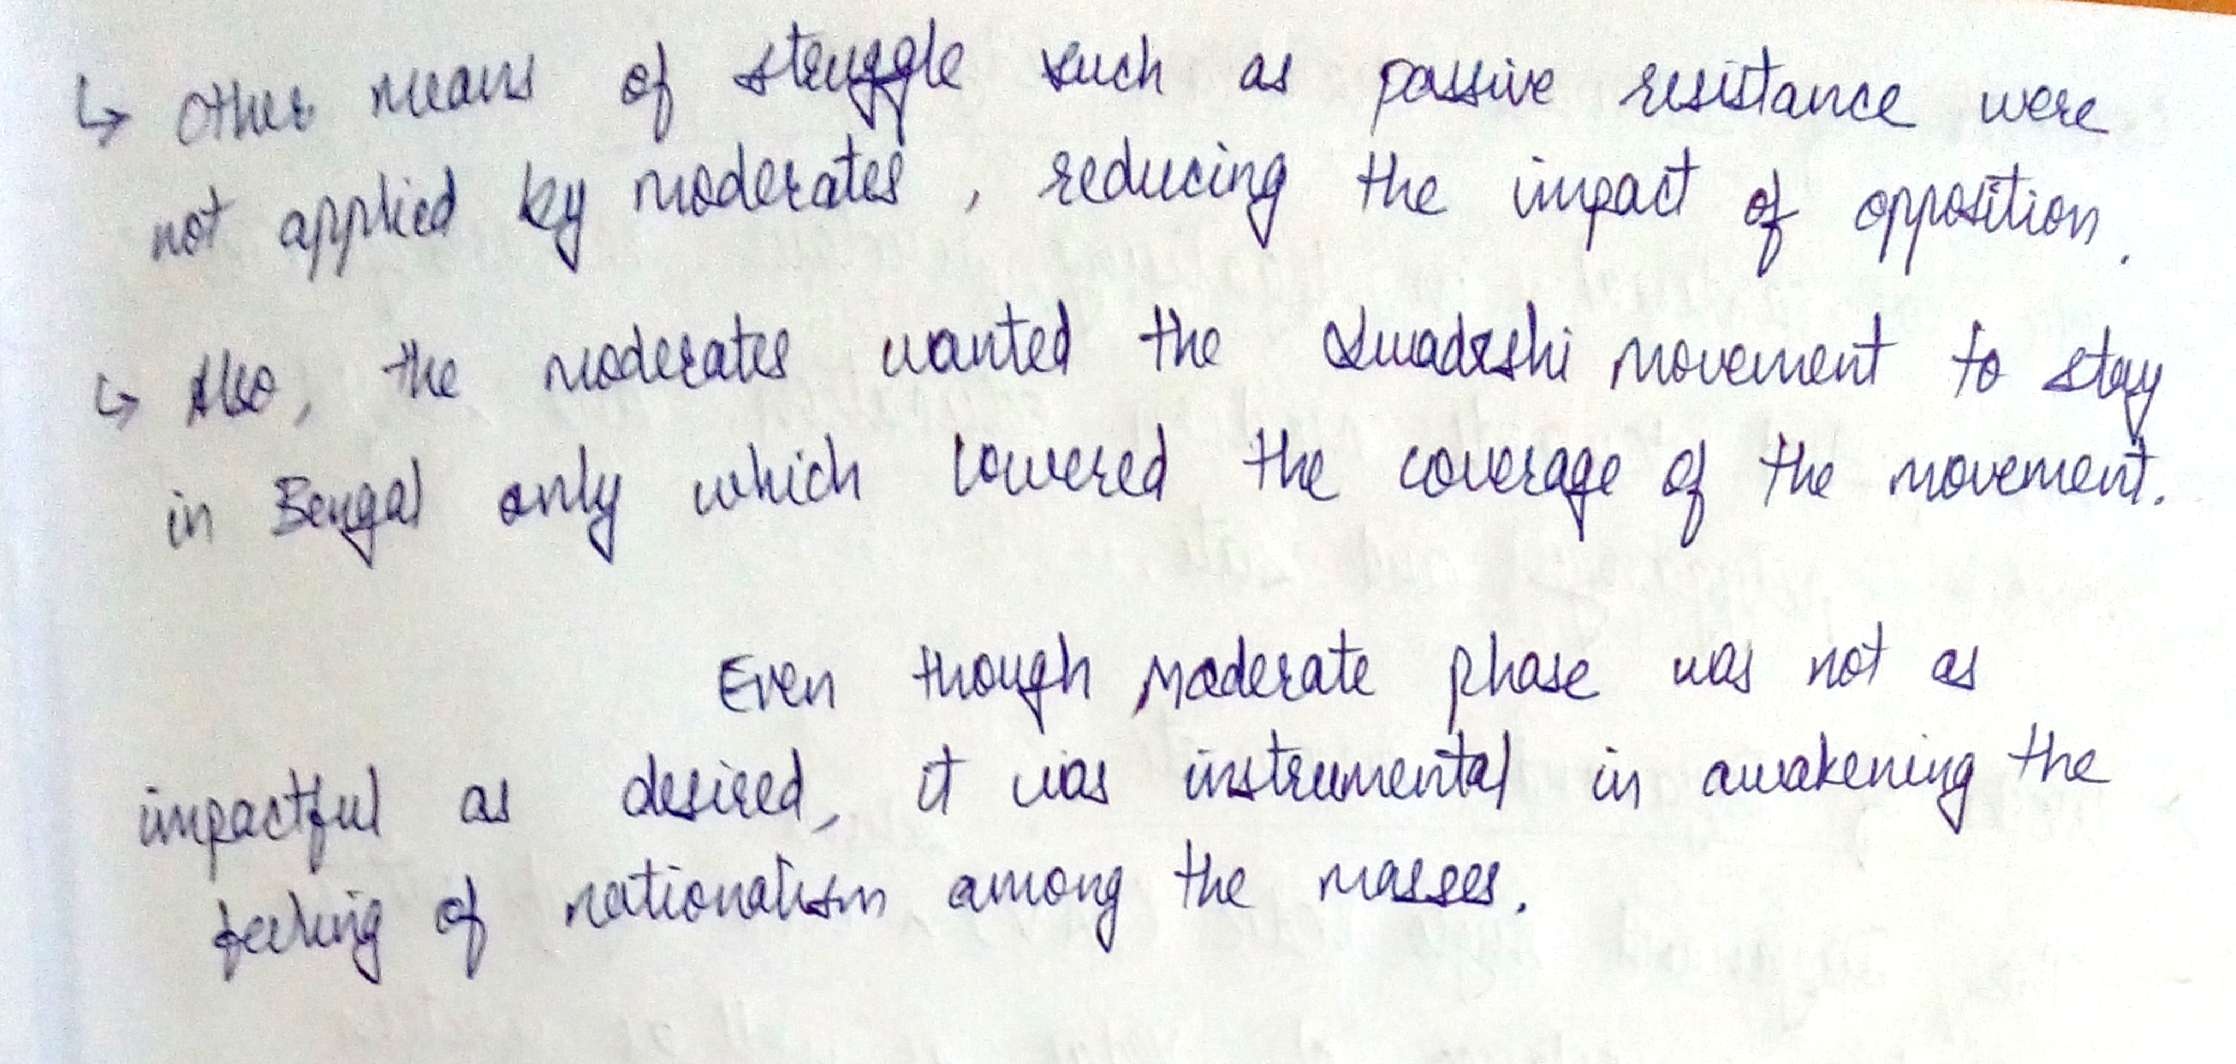 ↳ Other means of struggle such as passive resistance were
not applied by moderates, reducing the impact of opposition.
↳ Also, the moderates wanted the Swadeshi movement to stay
in Bengal only which lowered the coverage of the movement.
Even though Moderate phase was not as
impactful as desired, it was instrumental in awakening the
feeling of nationalism among the masses.